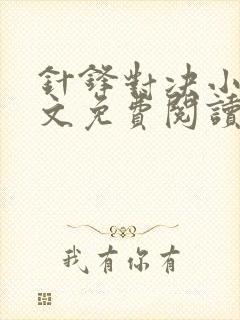 針鋒對决小
文免費閱讀
我有你有